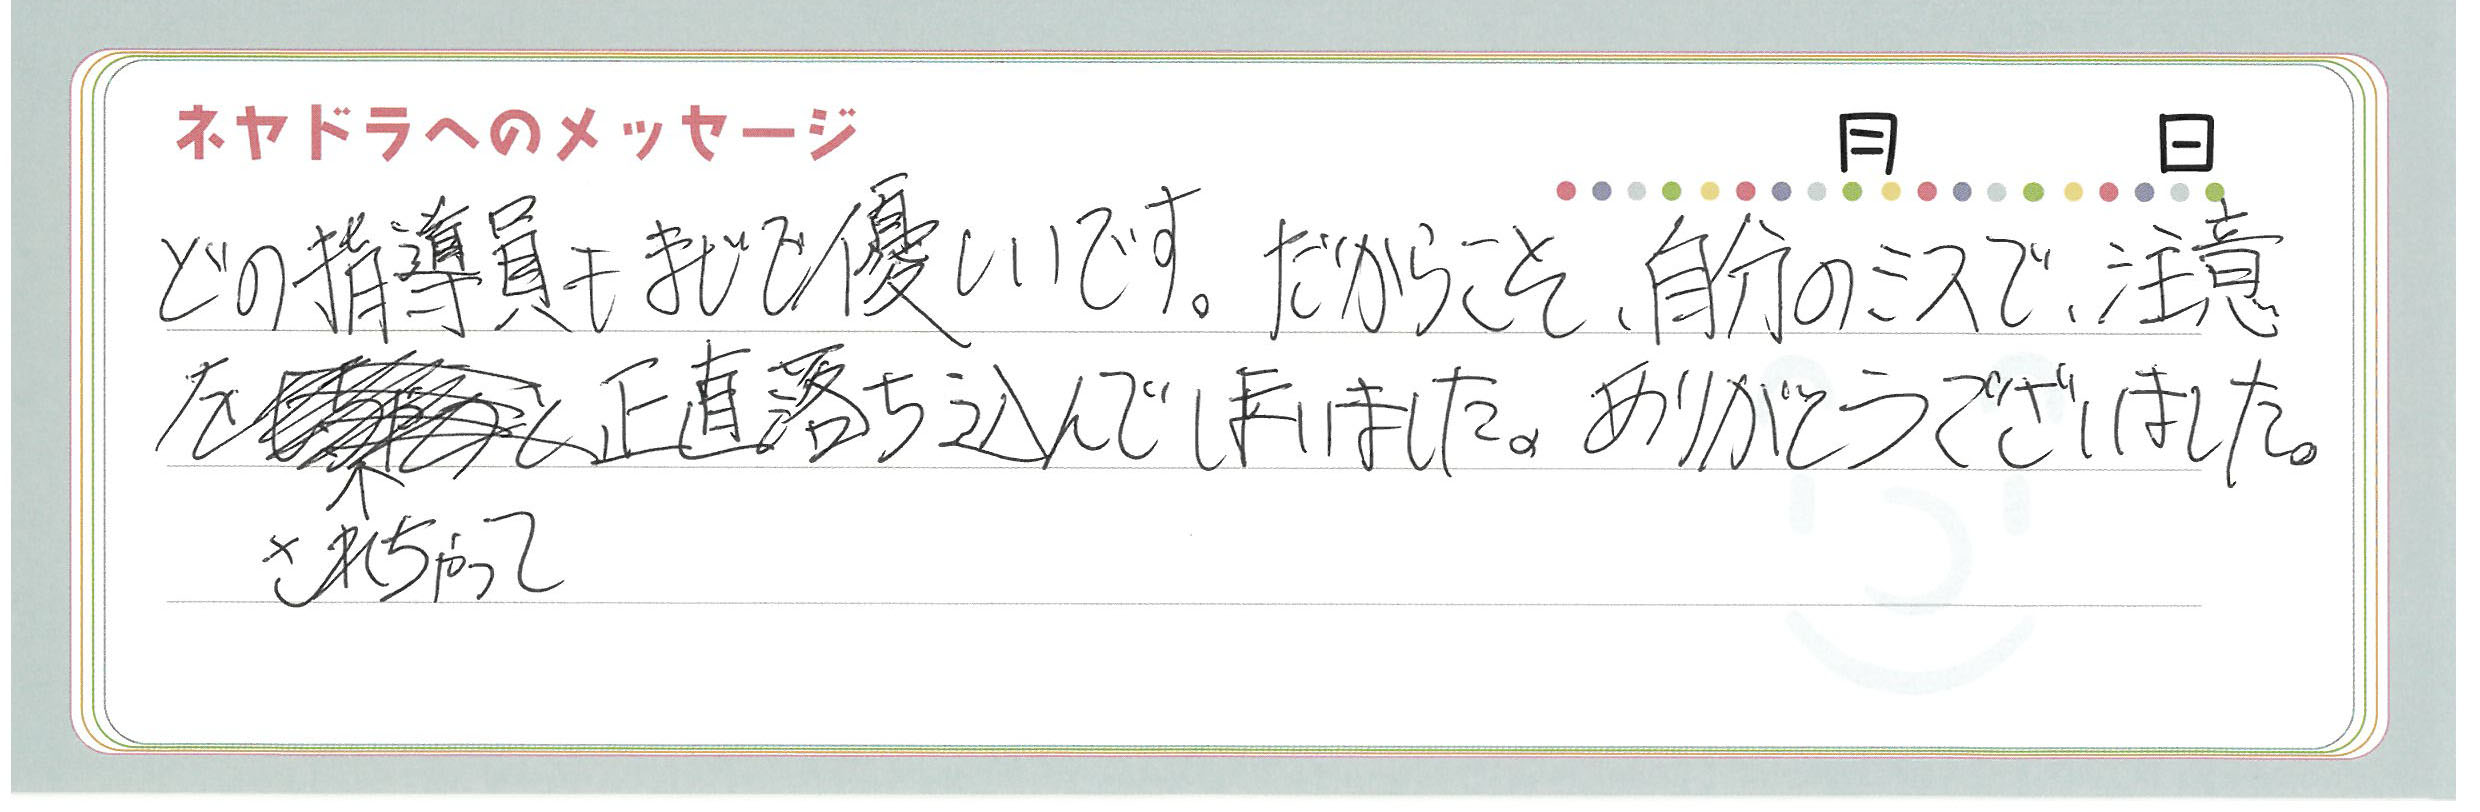 ネヤドラへのメッセージ
月 日
どの指導員もまじで優しいです。だからこそ、自分のミスで、注意
を と正直落ち込んでしまいました。ありがとうございました。
されちゃって